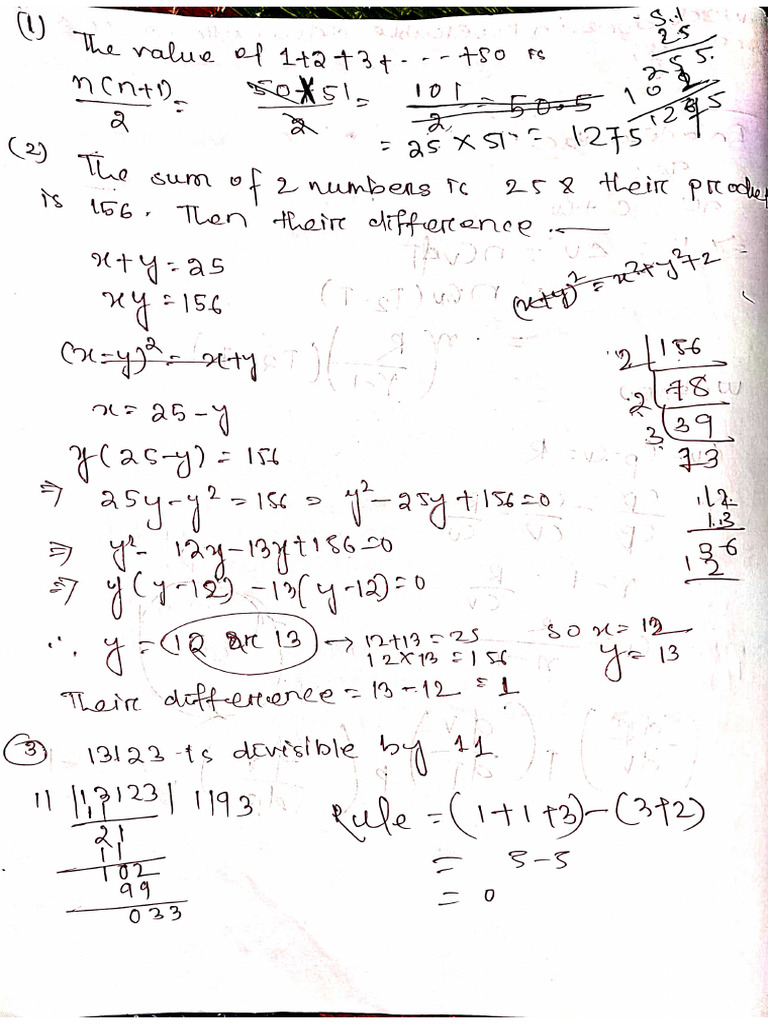 (1) The value of 1+2+3+ - - - +50 is
n(n+1)/2 = 50×51/2 = 101/2 = 50.5
= 25 × 51 = 1275
51
25
255
102
1275
(2) The sum of 2 numbers is 25 & their product
is 156. Then their difference. —
x+y = 25
xy = 156
(x+y)² = x²+y²+2
(x-y)² = x+y
x = 25-y
y(25-y) = 156
⇒ 25y-y² = 156 = y²-25y+156=0
⇒ y²- 12y-13y+156=0
⇒ y(y-12) -13(y-12)=0
∴ y = 12 or 13 → 12+13 = 25
12×13 = 156
so x = 12
y = 13
Their difference = 13-12 = 1
2 | 156
2 | 78
3 | 39
13
12
13
36
12
(3) 13123 is divisible by 11
11 | 13123 | 1193
11
21
11
102
99
033
Rule = (1+1+3)-(3+2)
= 5-5
= 0